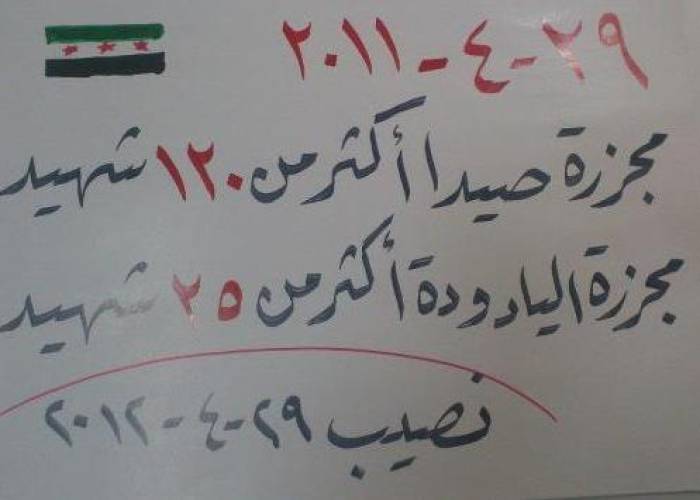 ٢٩-٤-٢٠١١
مجزرة صيدا أكثر من ١٢٠ شهيد
مجزرة اليادودة أكثر من ٢٥ شهيد
نصيب ٢٩-٤-٢٠١٢